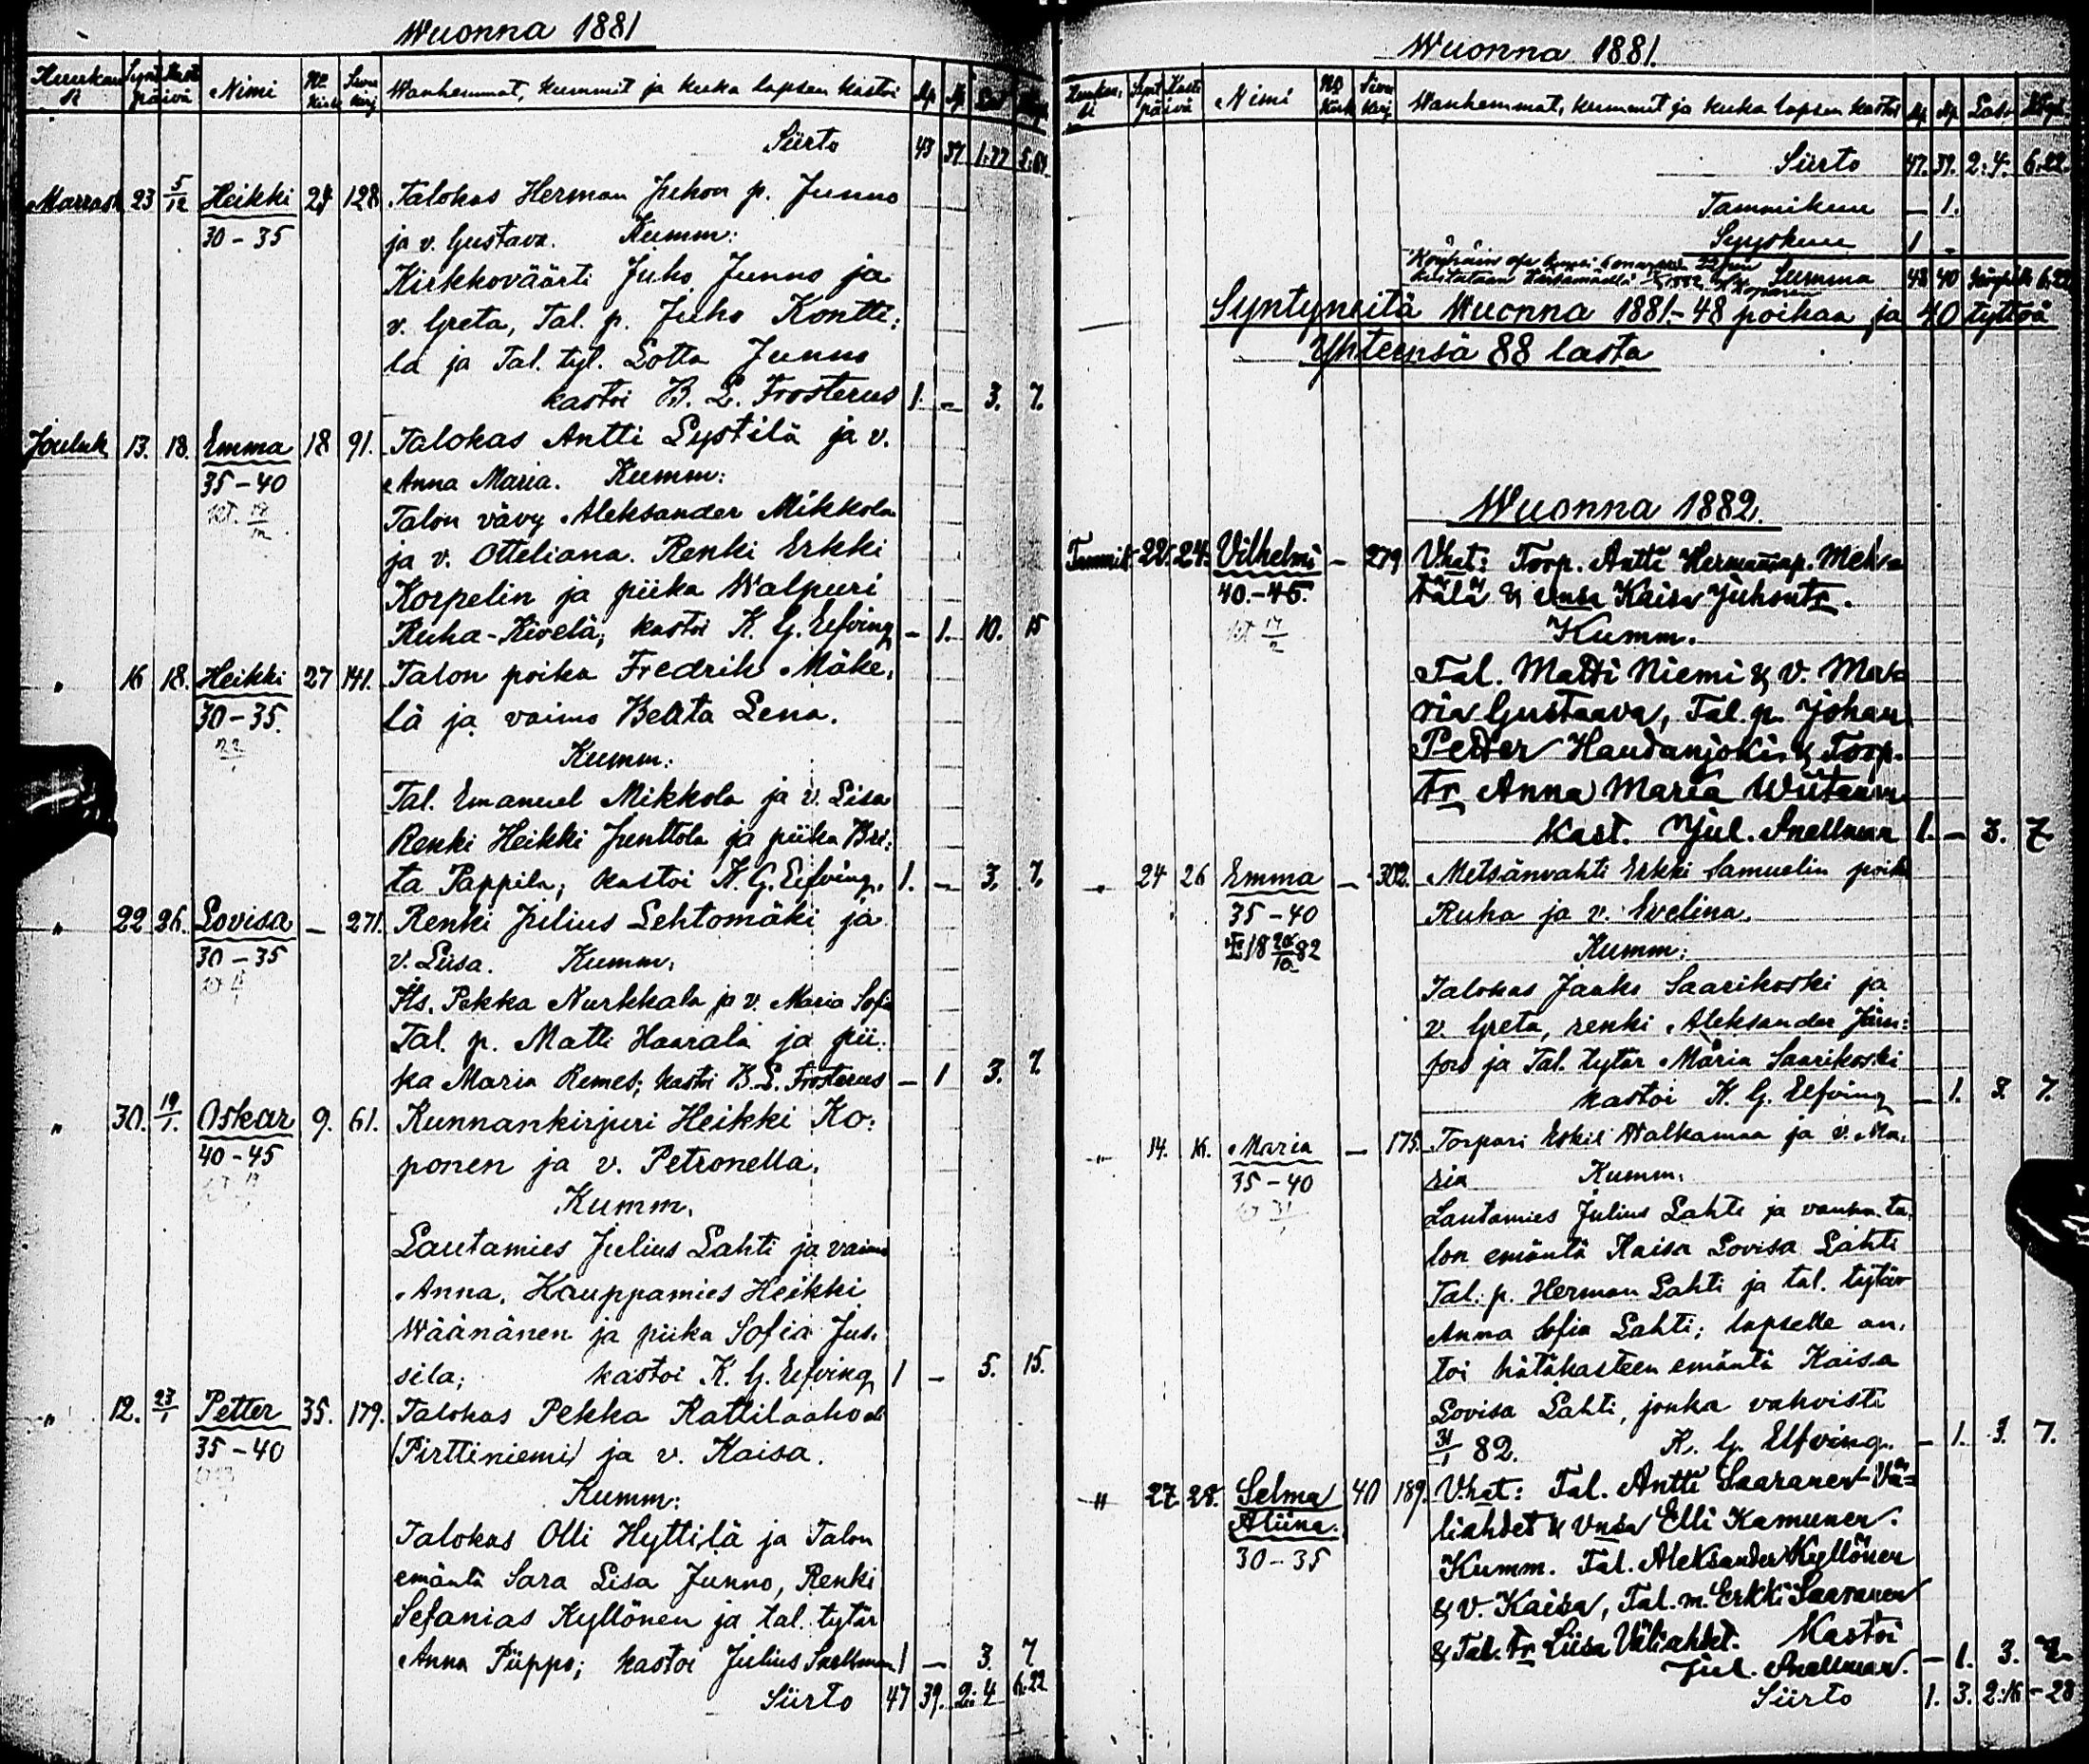 Wuonna 1881
Nimi Wanhemmat, kummit ja kuka lapsen kastoi
Siirto 43 37 1:77
Marrask 23 5/12 Heikki 128 Talokas Herman Juhon p. Junno
30-35 ja v. Gustava. Kumm:
Kirkkoväärti Juho Junno ja
v. Greta, Tal. p. Juho Kontti:
la ja Tal. tyt. Lotta Junno
kastoi B. L. Frosterus 1. - 3. 7.
Jouluk 13. 18. Emma 18 91. Talokas Antti Lystilä ja v.
35-40 Anna Maria. Kumm:
Talon vävy Aleksander Mikkola
ja v. Otteliana. Renki Erkki
Korpelin ja piika Walpuri
Ruha-Kivelä; kastoi K. G. Elfving - 1. 10. 15
" 16 18. Heikki 27 141. Talon poika Fredrik Mäke:
30-35. lä ja vaimo Beata Lena.
Kumm:
Tal. Emanuel Mikkola ja v. Lisa
Renki Heikki Junttola ja piika Bri:
ta Pappila; kastoi K. G. Elfving. 1. - 3. 7.
" 22 26. Lovisa - 271. Renki Julius Lehtomäki ja
30-35 v. Liisa. Kumm:
Its. Pekka Nurkkala ja v. Maria Sofia
Tal. p. Matti Haarala ja pii:
ka Maria Remes; kastoi B. L. Frosterus - 1 3. 7
" 30. 19/1. Oskar 9. 61. Kunnankirjuri Heikki Ko:
40-45 ponen ja v. Petronella.
Kumm.
Lautamies Julius Lahti ja vaimo
Anna, Kauppamies Heikki
Wäänänen ja piika Sofia Jus:
sila; kastoi K. G. Elfving 1 - 5. 15.
" 12. 23/1 Petter 35. 179. Talokas Pekka Kattilaaho eli
35-40 (Pirttiniemi) ja v. Kaisa.
Kumm:
Talokas Olli Hyttilä ja Talon
emäntä Sara Lisa Junno, Renki
Sefanias Kyllönen ja tal. tytär
Anna Piippo; kastoi Julius Snellman 1 - 3. 7
Siirto 47 39. 2:4 6:22
Wuonna 1881.
Nimi Wanhemmat, kummit ja kuka lapsen kastoi
Siirto 47. 39. 2:4. 6:22.
Tammikuu - 1.
Syyskuu 1 -
Summa 48 40
Syntyneitä Wuonna 1881.- 48 poikaa ja 40 tyttöä
Yhteensä 88 lasta
Wuonna 1882.
Tammik. 22. 24. Vilhelmi - 279 Vhat: Torp. Antti Hermaninp. Metsä
40.-45. tälä & vmsa Kaisa Juhontr.
Kumm.
Tal. Matti Niemi & v. Ma
ria Gustaava, Tal. p. Johan
Petter Haudanjoki & Torp.
tr Anna Maria Wiitaam
Kast. Jul. Snellman 1. - 3. 7
" 24 26 Emma - 302. Metsänvahti Erkki Samuelin poika
35-40 Ruha ja v. Evelina.
Kumm:
Talokas Jaako Saarikoski ja
v. Greta, renki Aleksander Järn:
fors ja Tal. tytär Maria Saarikoski
kastoi K. G. Elfving - 1. 3. 7.
" 14. 16. Maria - 175. Torpari Eskil Walkamaa ja v. Ma:
35-40 ria Kumm:
Lautamies Julius Lahti ja vanha ta:
lon emäntä Kaisa Lovisa Lahti
Tal. p. Herman Lahti ja tal. tytär
Anna Sofia Lahti; lapselle an:
toi hätäkasteen emäntä Kaisa
Lovisa Lahti, jonka vahvisti
31/1 82. K. G. Elfving. - 1. 3. 7.
" 27 28. Selma 40 189. Vhat: Tal. Antti Saaranen Vä=
Aliina. liahdet & vmsa Elli Kamunen.
30-35 Kumm. Tal. Aleksander Kyllönen
& v. Kaisa, Tal. m. Erkki Saaranen
& Tal. tr Liisa Väliahdet. Kastoi
Jul. Snellman. - 1. 3. 7.
Siirto 1. 3. 2:16 - 28